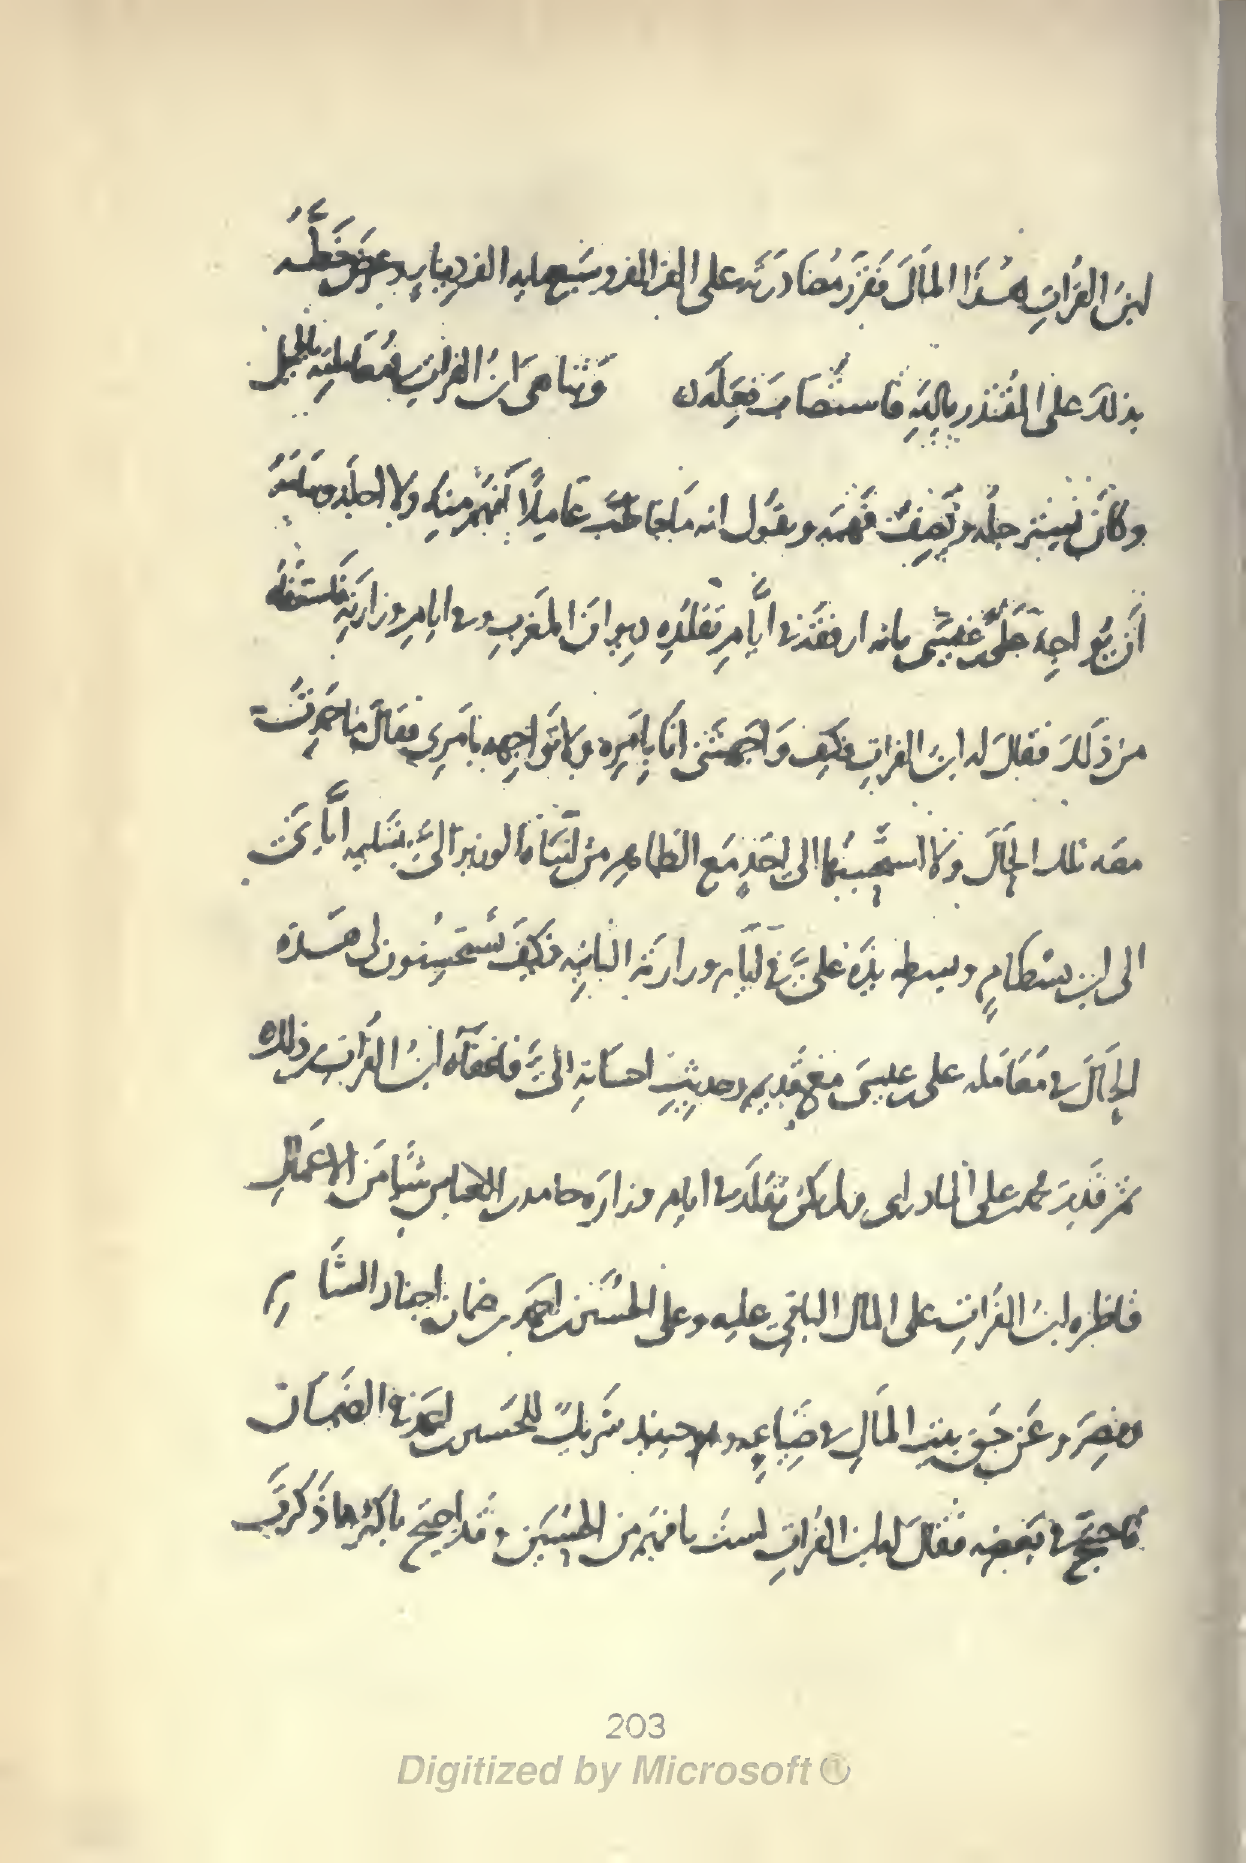 ابنُ الفُراتِ هذا المالَ فقرّر مُصادرَته على الف الف وسبع مايه الف دينارٍ وعرض خطَّهُ
بذلك على المقتدر باللهِ فاستصابَ فعلَه وتناهى ابنُ الفرات في مُعاملته بالجميل
وكان يصفُ فهمَه ويقول انه ما خاطب عاملاً افهم منه ولا اجلد وسامَهُ
أن يُواجِهَ علي بن عيسى بانه ارفقَه في أيّامِ تقلّدِه ديوانَ المغرب وفي ايام وزارتِه
من ذلك فقال له ابن الفراتِ فكيف واجهتني انا بامرِه ولا تُواجهه بامري فقال ما
معه تلك الحالَ ولا الى احدٍ مع الوزير اليّ بتسليمه
الى ابن بسطامٍ وبسطه يدَه عليّ في أيّام وزارته الثانيه فكيف تستحسنون لي هذه
الحالَ في معامله علي بن عيسى مع قديمِ وحديثِ احسانه اليَّ فاعفاه ابنُ الفُرات من ذلك
ثم قدِمَ محمد بن علي المادرائي ولم يكن تقلّد في ايام وزارةِ حامد بن العباس شيئًا من الاعمالِ
فناظره ابنُ الفُراتِ على المال الباقي عليه وعلى الحُسين بن احمد من ضمان اجناد الشّام
ومِصرَ وعن حق بيت المالِ في ضياعِه وهو حينئذ شريكٌ للحُسين بن احمد في الضمان
فاحتجّ في بعضه فقال له ابن الفُراتِ لستَ بافهم من الحُسين وقد احتج باكثر مما ذكرت
203
Digitized by Microsoft ®